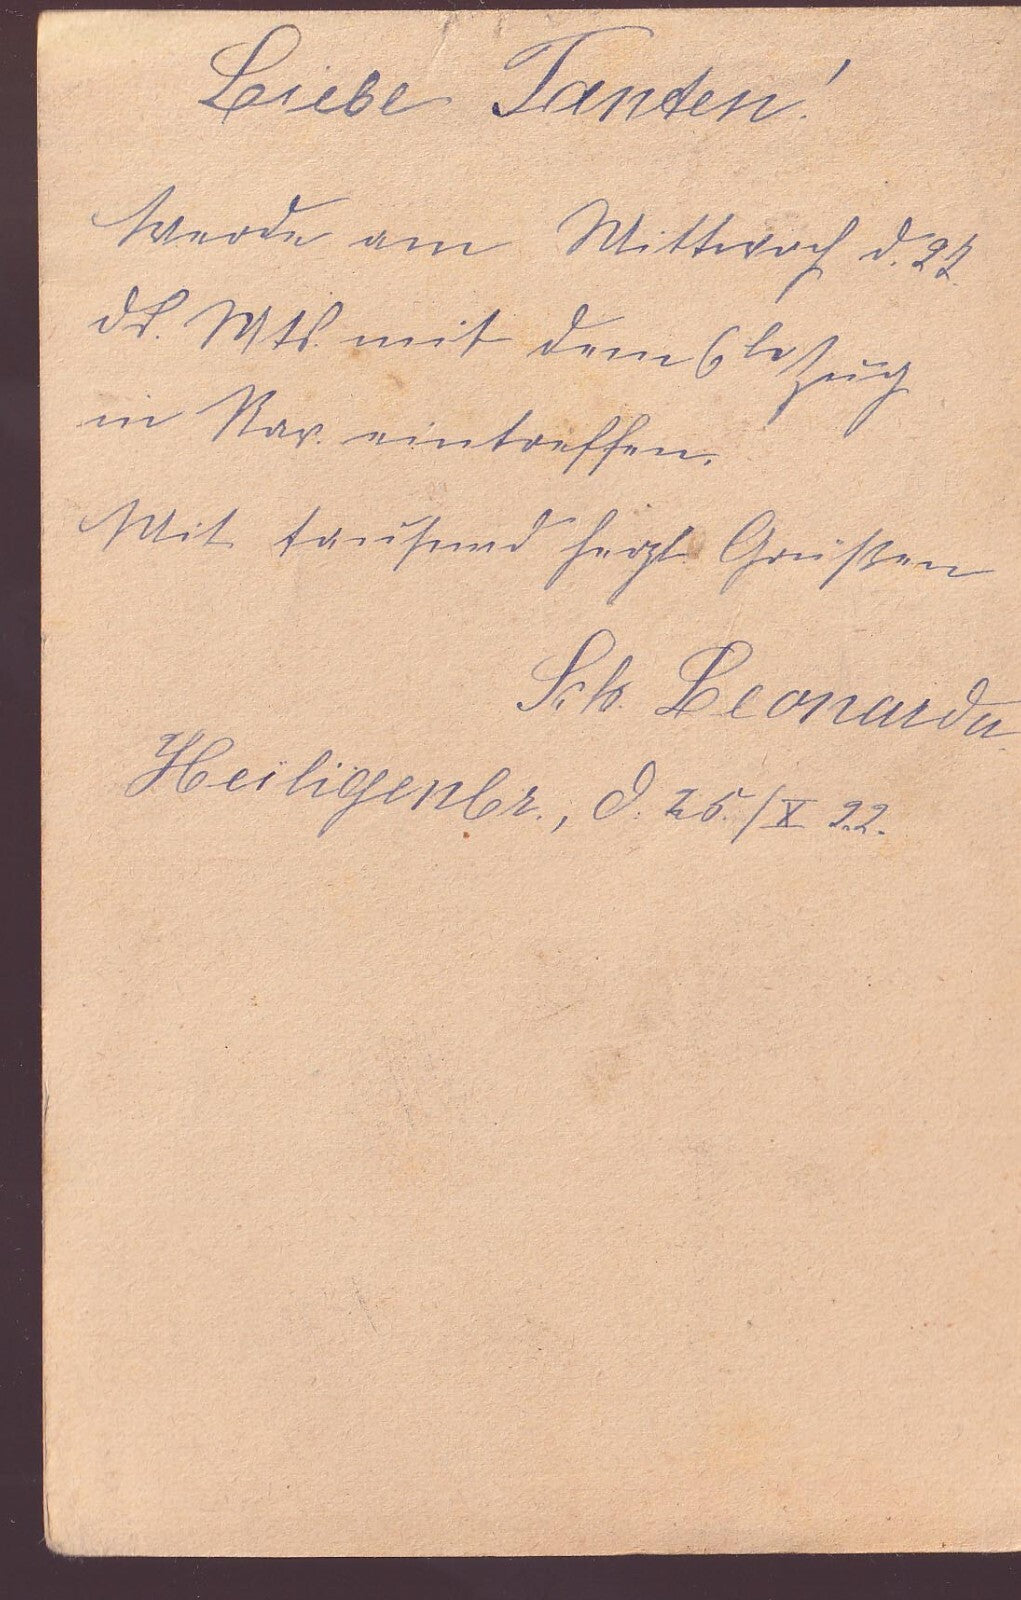 Liebe Tanten!
Werde am Mittwoch d.
ds. Mts. mit dem Zug
in Rav. eintreffen.
Mit tausend herzl. Grüßen
Sch. Leonarda
Heiligenbr., d. 25./X 22.